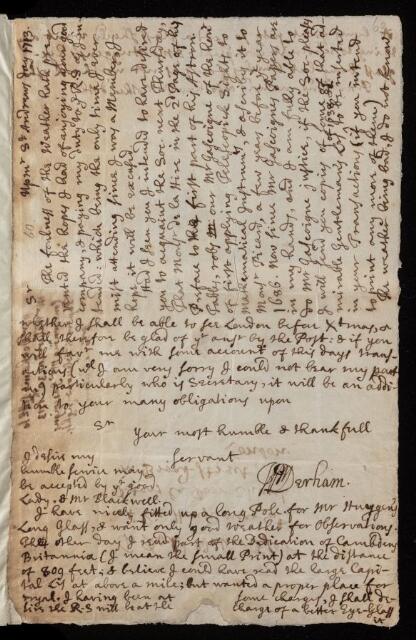 Upmr St Andrews day 1713
Sr
The foulness of the Weather hath pre-
vented the hopes I had of enjoying some good
company, & paying my duty to ye R S. of I am
which being the only time I ever
mist attending since I was a Member, I
hope it will be excused.
Had I seen you I intended to have desired
you to acquaint the Soc. next Thursday,
That Monsr de la Hire in the 2d Page of his
Preface to the first part of his Astron:
Tables, robs our Mr Gascoigne of the honr
of first applying Telescopick Sights to
Mathematical Instrumts, & ascribes it to
Monsr Picard, a few years before ye year
1686. Now since Mr Gascoigne's Papers are
in my hands, and I am fully able to
do Mr Gascoigne justice, if the Soc. please
I will send you copies of some of that ad-
mirable gentleman's Lrs to be inserted
in your Transactions (if you intend
to print any more of them)
The weather being bad, I do not know
whether I shall be able to see London before Xtmas, &
shall therefore be glad of yr answr by the Post: & if you
will favr me with some account of this days Trans-
actions (wch I am very sorry I could not bear my part
in) particularly who is Secretary, it will be an addi-
tion to your many obligations upon
Sr
Your most humble & thankfull
servant
WDerham.
I desire my
humble service may
be accepted by yr good
Lady, & Mr Blackwell.
I have nicely fitted up a long Pole for Mr Huygens's
Long Glass, & want only good Weather for Observations.
The other day I read part of the Dedication of Cambdens
Britannia (I mean the small Print) at the distance
of 809 feet; & believe I could have read the large Capi-
tal Lrs at above a mile; but wanted a proper place for
tryal. I having been at some charges, I shall
the R-S will bear the
charge of a better Eye-Glass